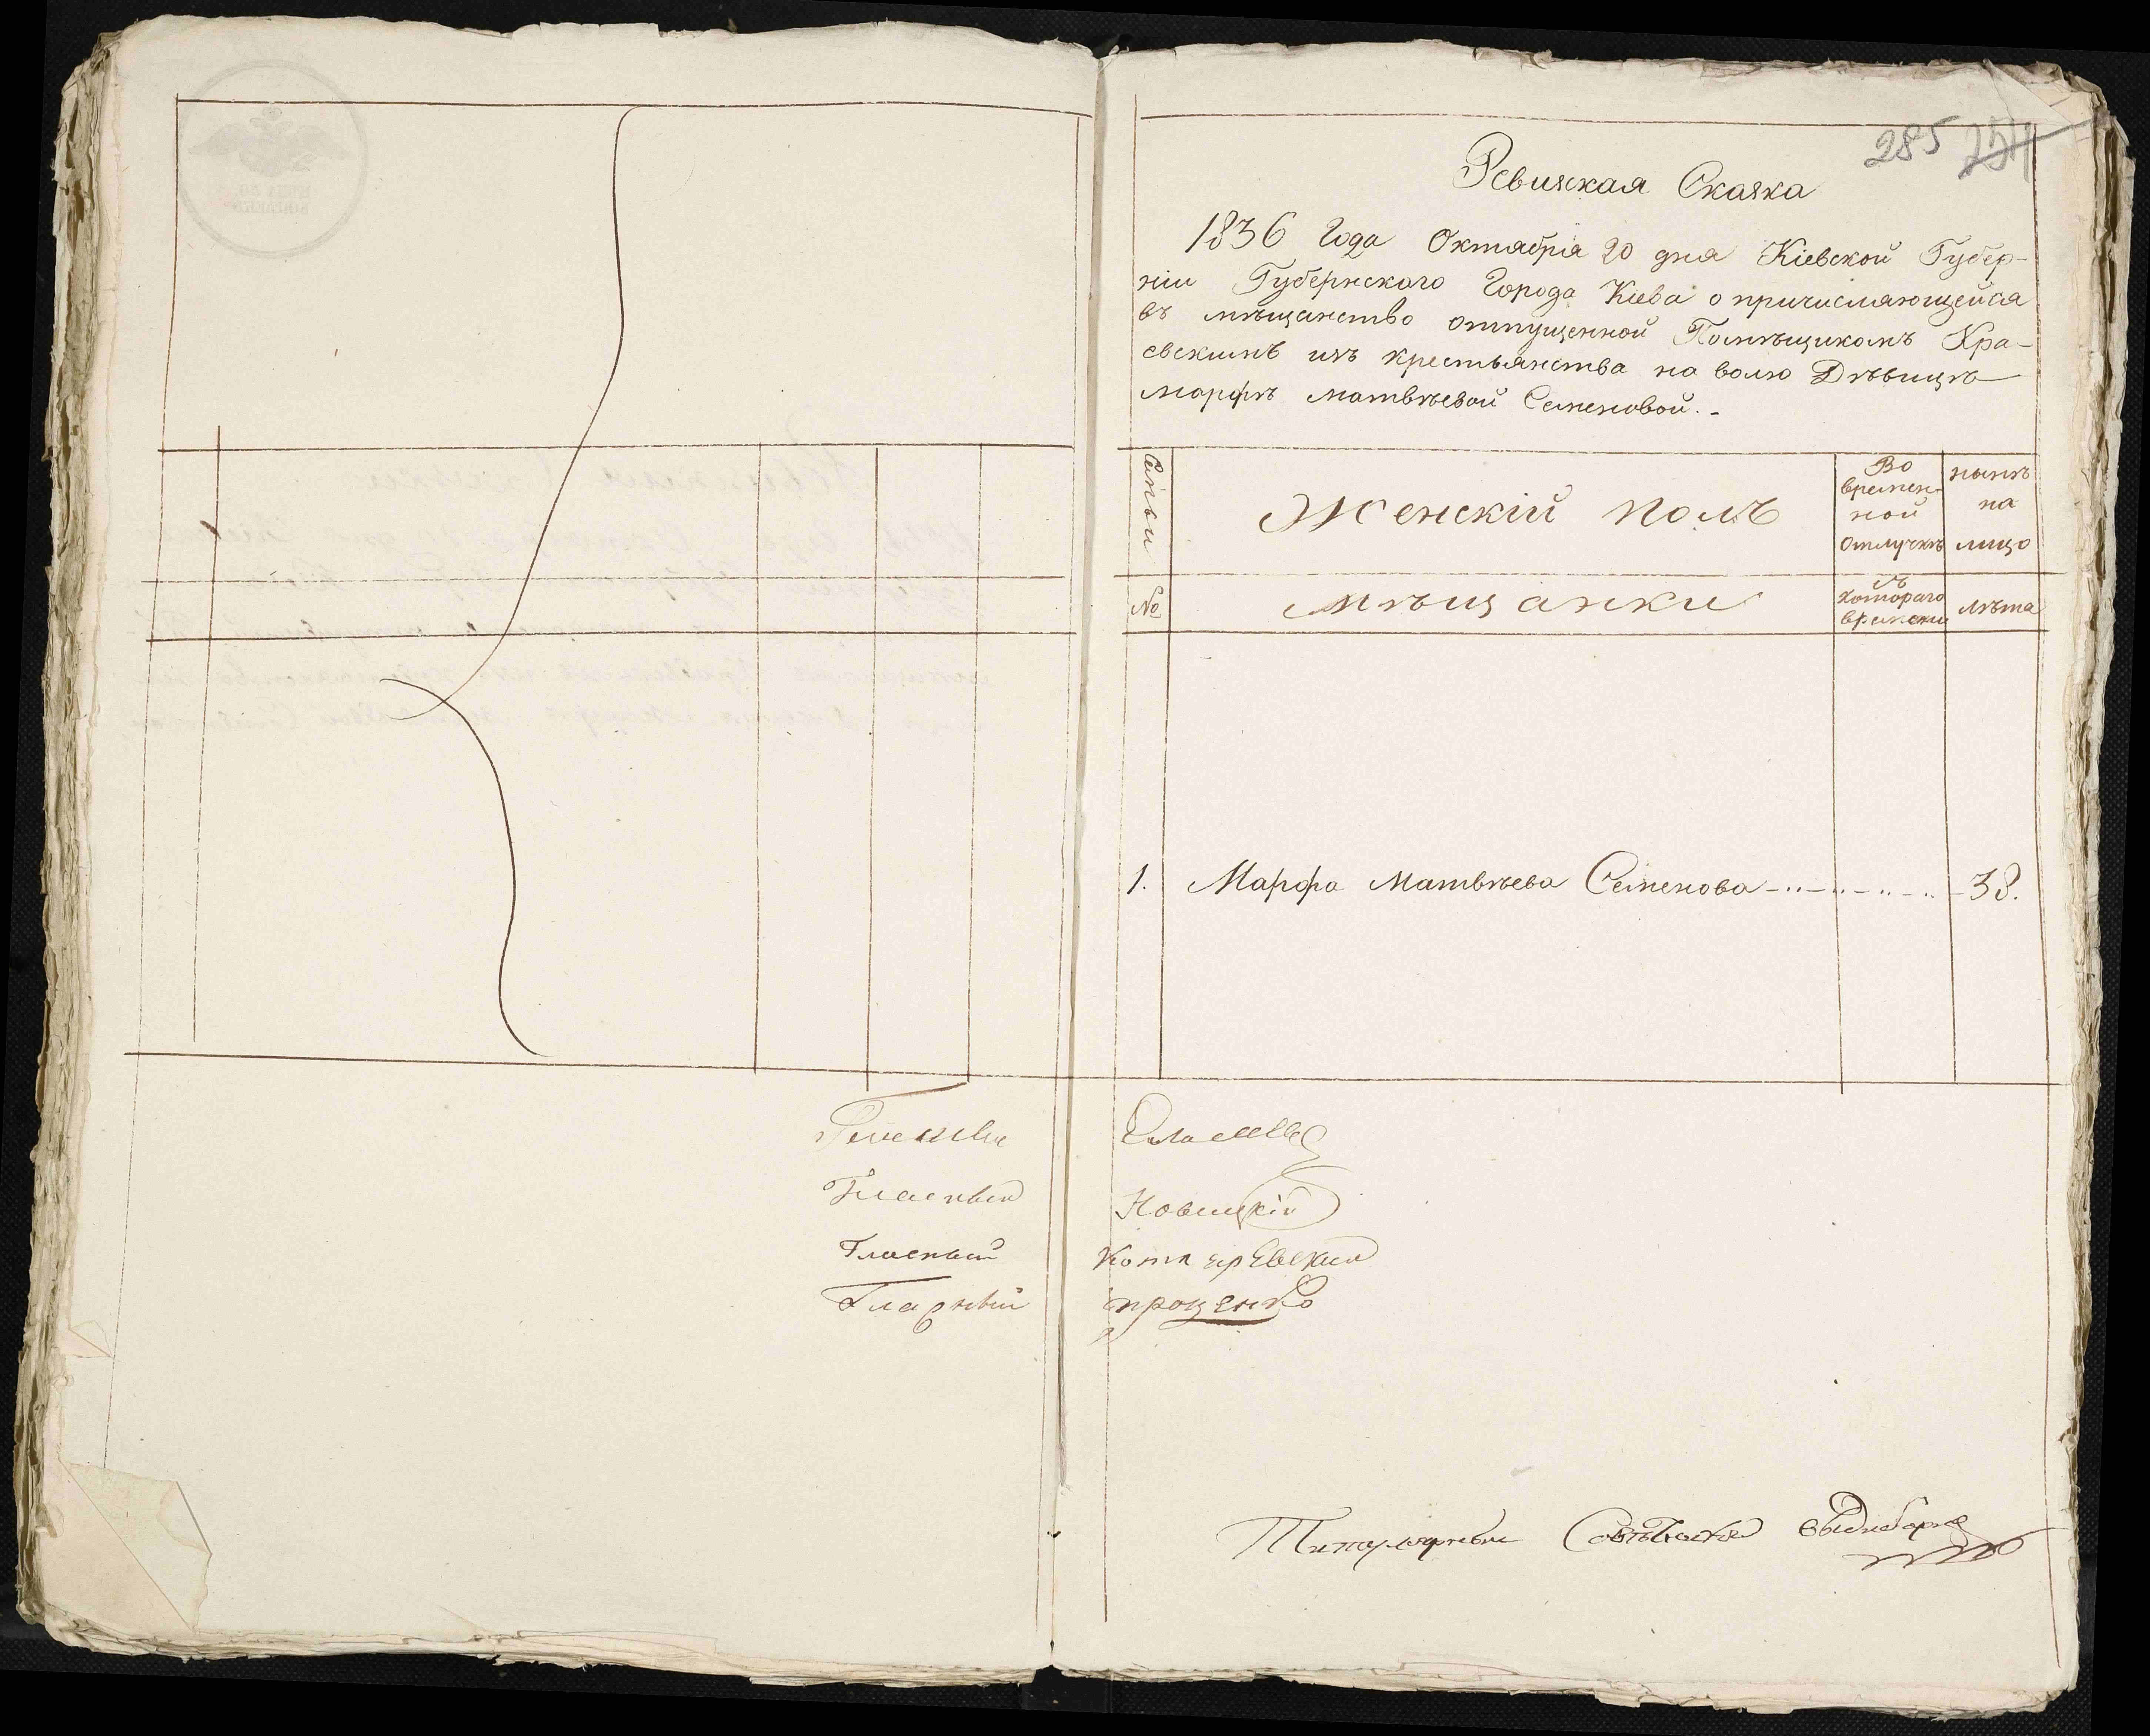 285 254
Ревизкая Сказка
1836 Года Октября 20 дня Кіевской Губер-
ніи Губернского Города Кіева о причисляющейся
въ мѣщанство отпущенной Помѣщикомъ Кра-
евскимъ изъ крестьянства на волю Дѣвицѣ
Марфѣ Матвѣевой Семеновой.-
Семьи
Женскій полъ
Во времен-
ной
отлучкѣ
нынѣ
на
лицо
№
Мѣщанки
съ
котораго
времени
лѣта
1. Марфа Матвѣева Семенова 38.
Гласный Новицкій
Гласный Котляревский
Гласный Проценко
Титулярный Совѣтникъ